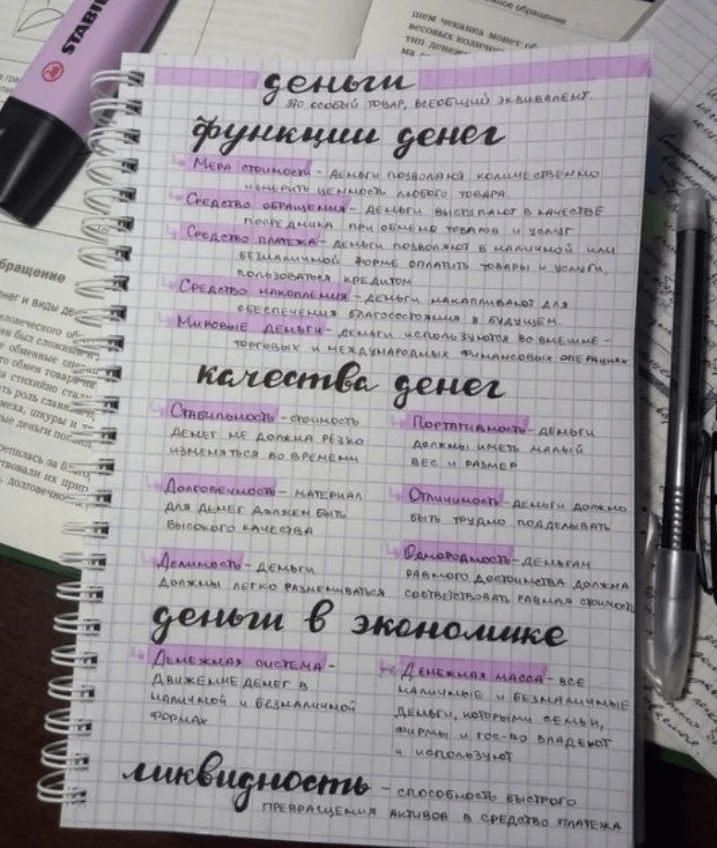 STABIL
нежное обращение
шем чеканка монет об
весовых количес
тип денежн
деньги
это особый товар, всеобщий эквивалент.
функции денег
Мера стоимости - деньги позволяют количественно
измерить ценность любого товара
Средство обращения - деньги выступают в качестве
посредника при обмене товаров и услуг
Средство платежа - деньги позволяют в наличной или
безналичной форме оплатить товары и услуги,
пользоваться кредитом
Средство накопления - деньги накапливают для
обеспечения благосостояния в будущем.
Мировые деньги - деньги используются во внешне-
торговых и международных финансовых операциях
качества денег
Стабильность - стоимость
денег не должна резко
изменяться во времени
Долговечность - материал
для денег должен быть
высокого качества
Делимость - деньги
должны легко размениваться
Портативность - деньги
должны иметь малый
вес и размер
Отличимость - деньги должно
быть трудно подделывать
Однородность - деньгам
равного достоинства должна
соответствовать равная стоимость
деньги в экономике
Денежная система -
движение денег в
наличной и безналичной
формах
Денежная масса - все
наличные и безналичные
деньги, которыми семьи,
фирмы и гос-во владеют
и используют
ликвидность - способность быстрого
превращения активов в средство платежа
бращение
нег и виды де
еловеческого об
ен был сложным и
е обменные опе
о обмен товара на
а стихийно ста
ть роль главн
меха, шкуры и
ые деньги по
ретилась за б
твовали их при
, долговечно